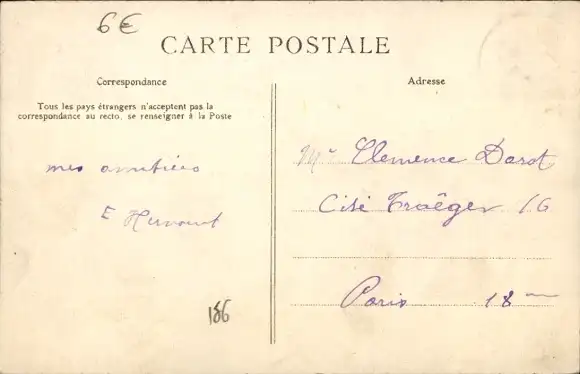 6€
CARTE POSTALE
Correspondance
Tous les pays étrangers n'acceptent pas la
correspondance au recto, se renseigner à la Poste
mes amitiés
E
186
Adresse
Clemence Darot
Cité Traêger 16
Paris 18